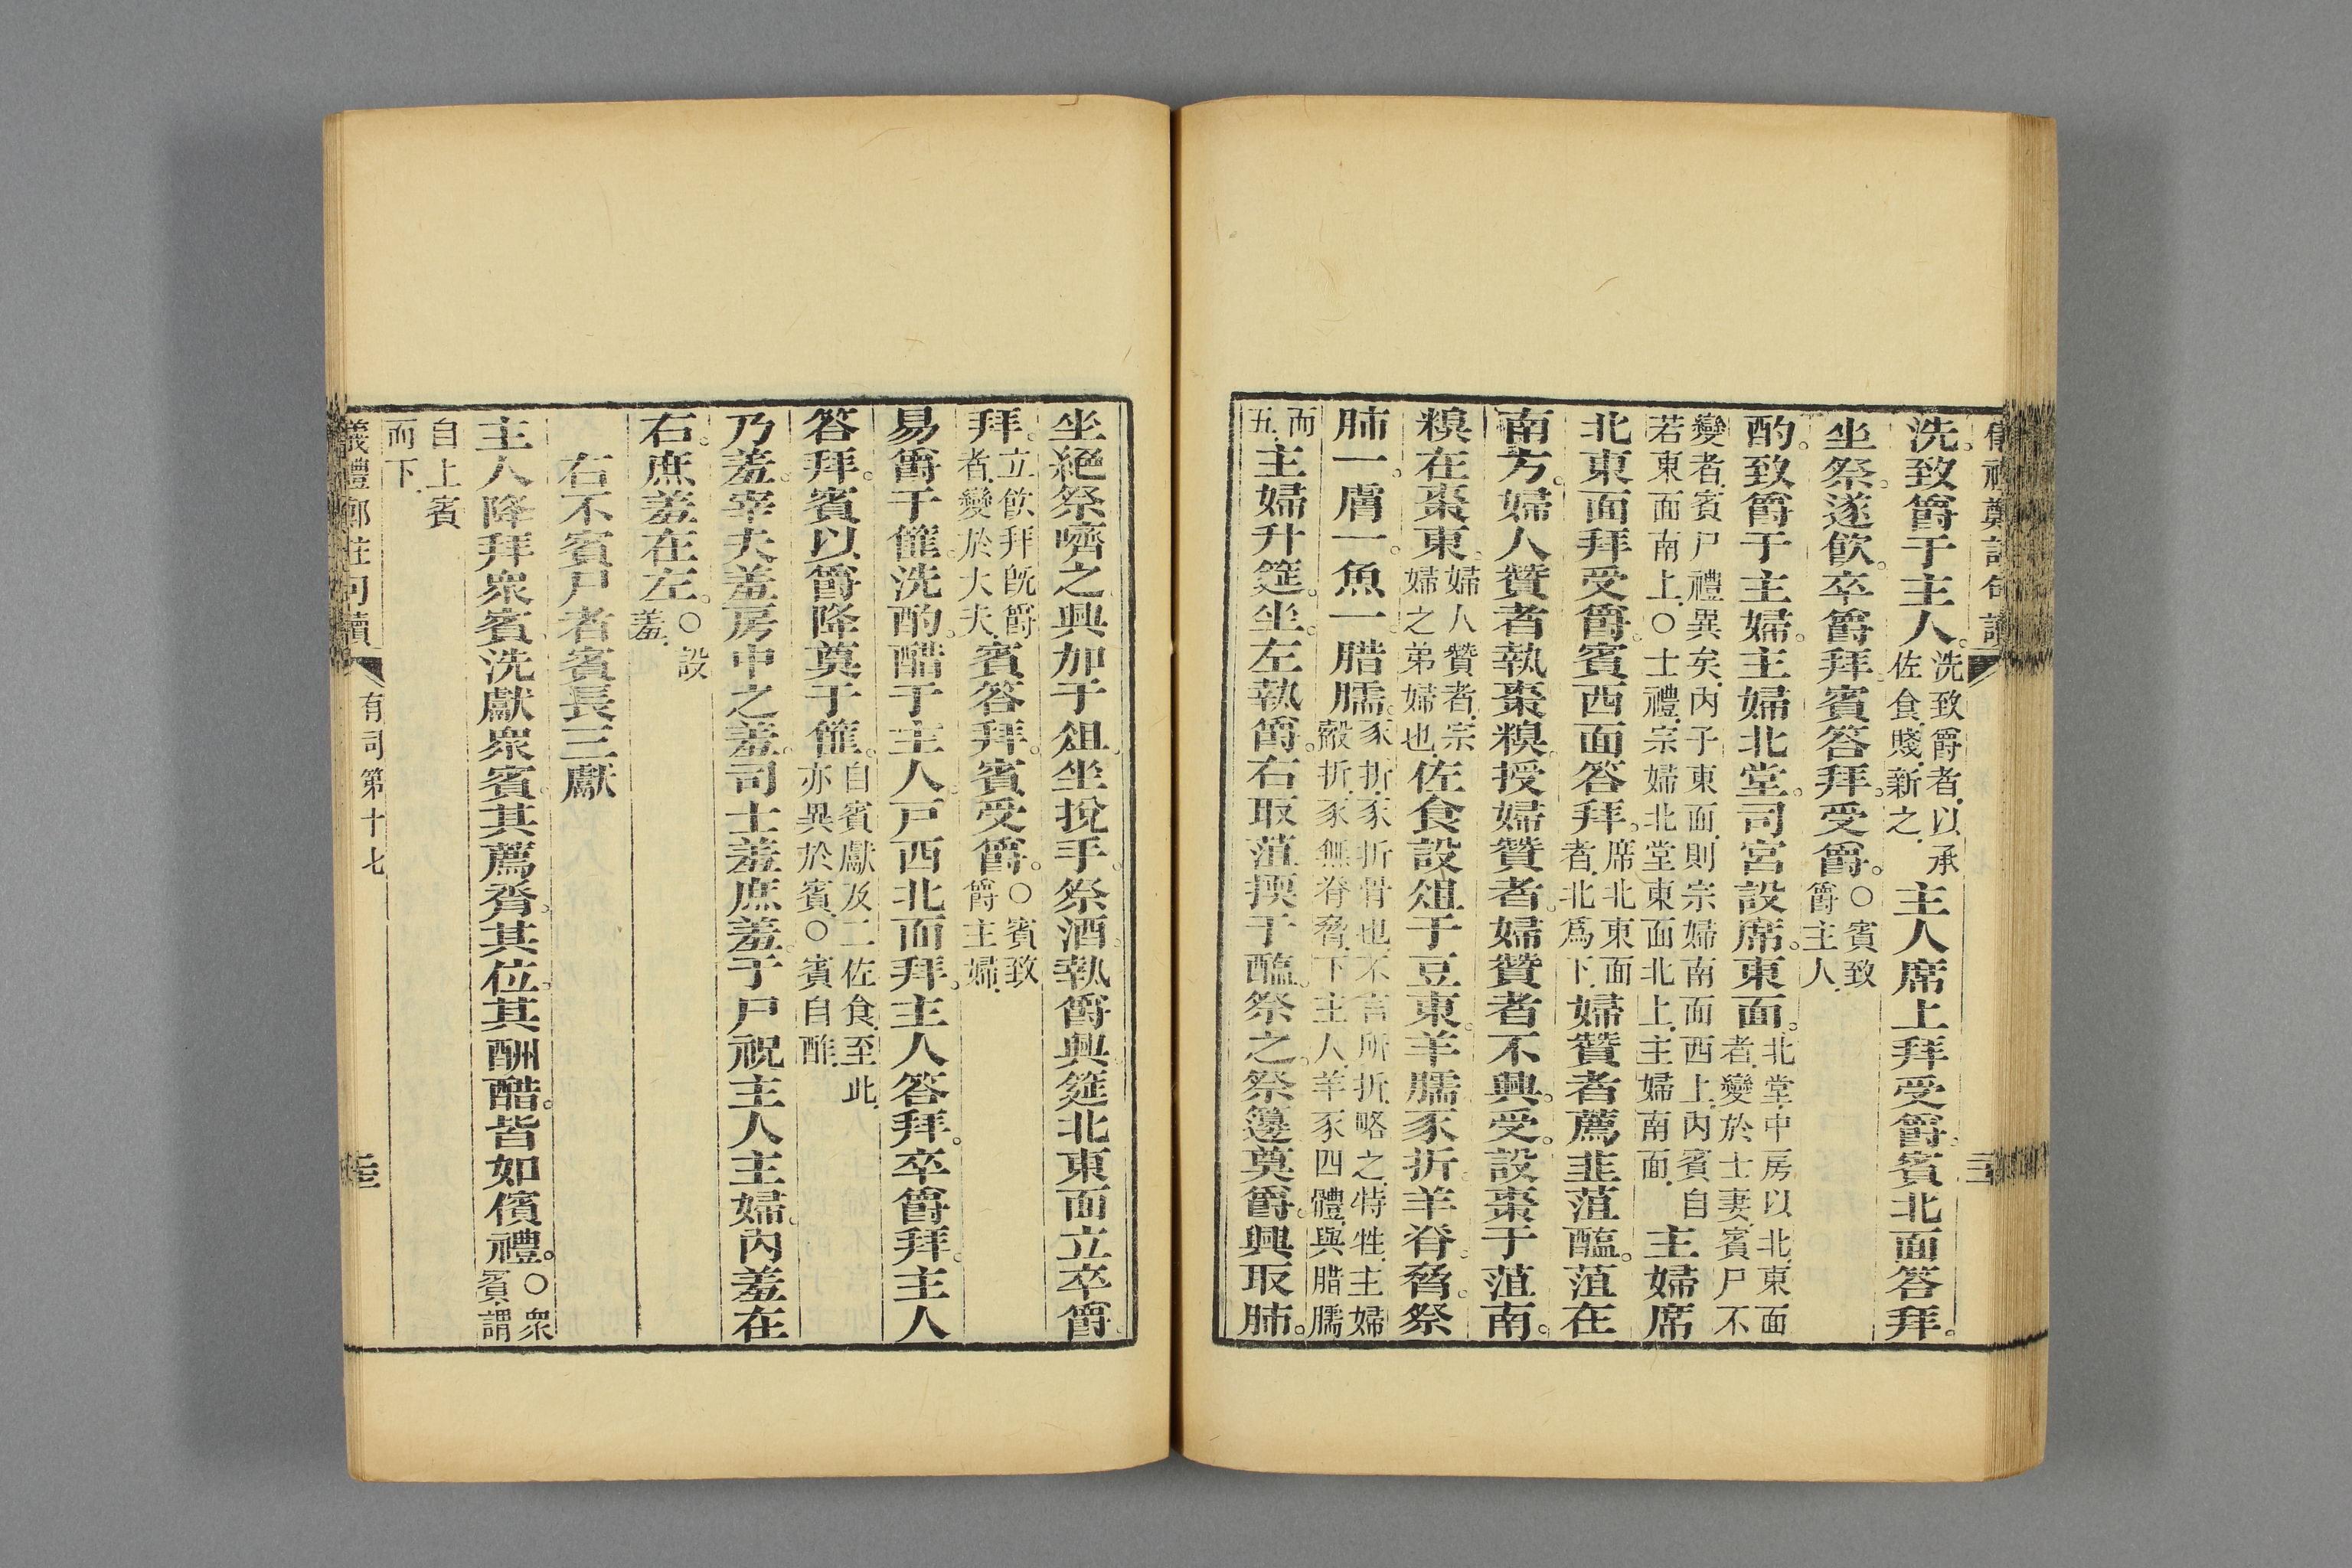 儀禮鄭註句讀
洗。致爵于主人。洗致爵者。以承佐食賤。新之。主人席上拜受爵。賓北面答拜。
坐祭。遂飲。卒爵拜。賓答拜。受爵。○賓致爵主人。
酌。致爵于主婦。主婦北堂。司宮設席。東面。北堂。中房以北。東面者。變於士妻。賓尸不
變者。賓尸禮異矣。內子東面。則宗婦南面西上。內賓自若東面南上。○士禮。宗婦北堂東面北上。主婦南面。主婦席
北東面拜受爵。賓西面答拜。席北東面者。北爲下。婦贊者薦韭菹醢。菹在
南方。婦人贊者執棗糗。授婦贊者。婦贊者不興。受。設棗于菹南。
糗在棗東。婦人贊者。宗婦之弟婦也。佐食設俎于豆東。羊臑豕折。羊脊。脅。祭
肺一。膚一。魚一。腊臑。豕折。豕折骨也。不言所折。略之。特牲。主婦觳折。豕無脊脅。下主人。羊豕四體。與腊臑
而五。主婦升筵。坐。左執爵。右取菹擩于醢。祭之。祭籩。奠爵。興取肺。
坐絕祭。嚌之。興加于俎。坐挩手。祭酒。執爵興。筵北東面立卒爵。
拜。立飲拜既爵者。變於大夫。賓答拜。賓受爵。○賓致爵主婦。
易爵于篚。洗酌。醋于主人。戶西北面拜。主人答拜。卒爵拜。主人
答拜。賓以爵降奠于篚。自賓獻及二佐食。至此。亦異於賓。○賓自酢。
乃羞。宰夫羞房中之羞。司士羞庶羞于尸祝主人主婦。內羞在
右。庶羞在左。○設羞。
右不賓尸者賓長三獻
主人降拜眾賓。洗獻眾賓。其薦脀。其位。其酬醋。皆如儐禮。○眾賓。謂
自上賓而下。
儀禮鄭註句讀 有司第十七